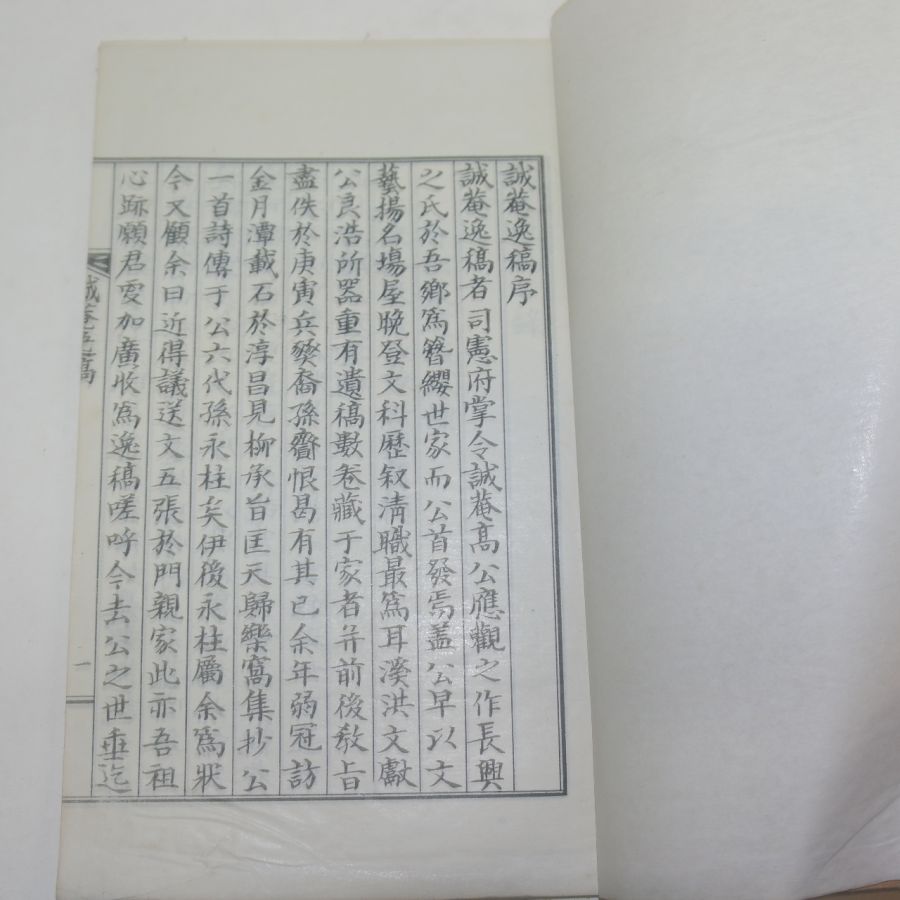 誠菴逸稿序
誠菴逸稿者司憲府掌令誠菴高公應觀之作長興
之氏於吾鄉爲簪纓世家而公首發焉蓋公早以文
藝揚名場屋晚登文科歷敘清職最爲耳溪洪文獻
公良浩所器重有遺稿數卷藏于家者并前後教旨
盡佚於庚寅兵燹裔孫齎恨曷有其已余年弱冠訪
金月潭載石於淳昌見柳承旨匡天歸樂窩集抄公
一首詩傳于公六代孫永柱矣伊後永柱屬余爲狀
今又顧余曰近得議送文五張於門親家此亦吾祖
心跡願君更加廣收爲逸稿嗟呼今去公之世垂迄
誠菴逸稿
一